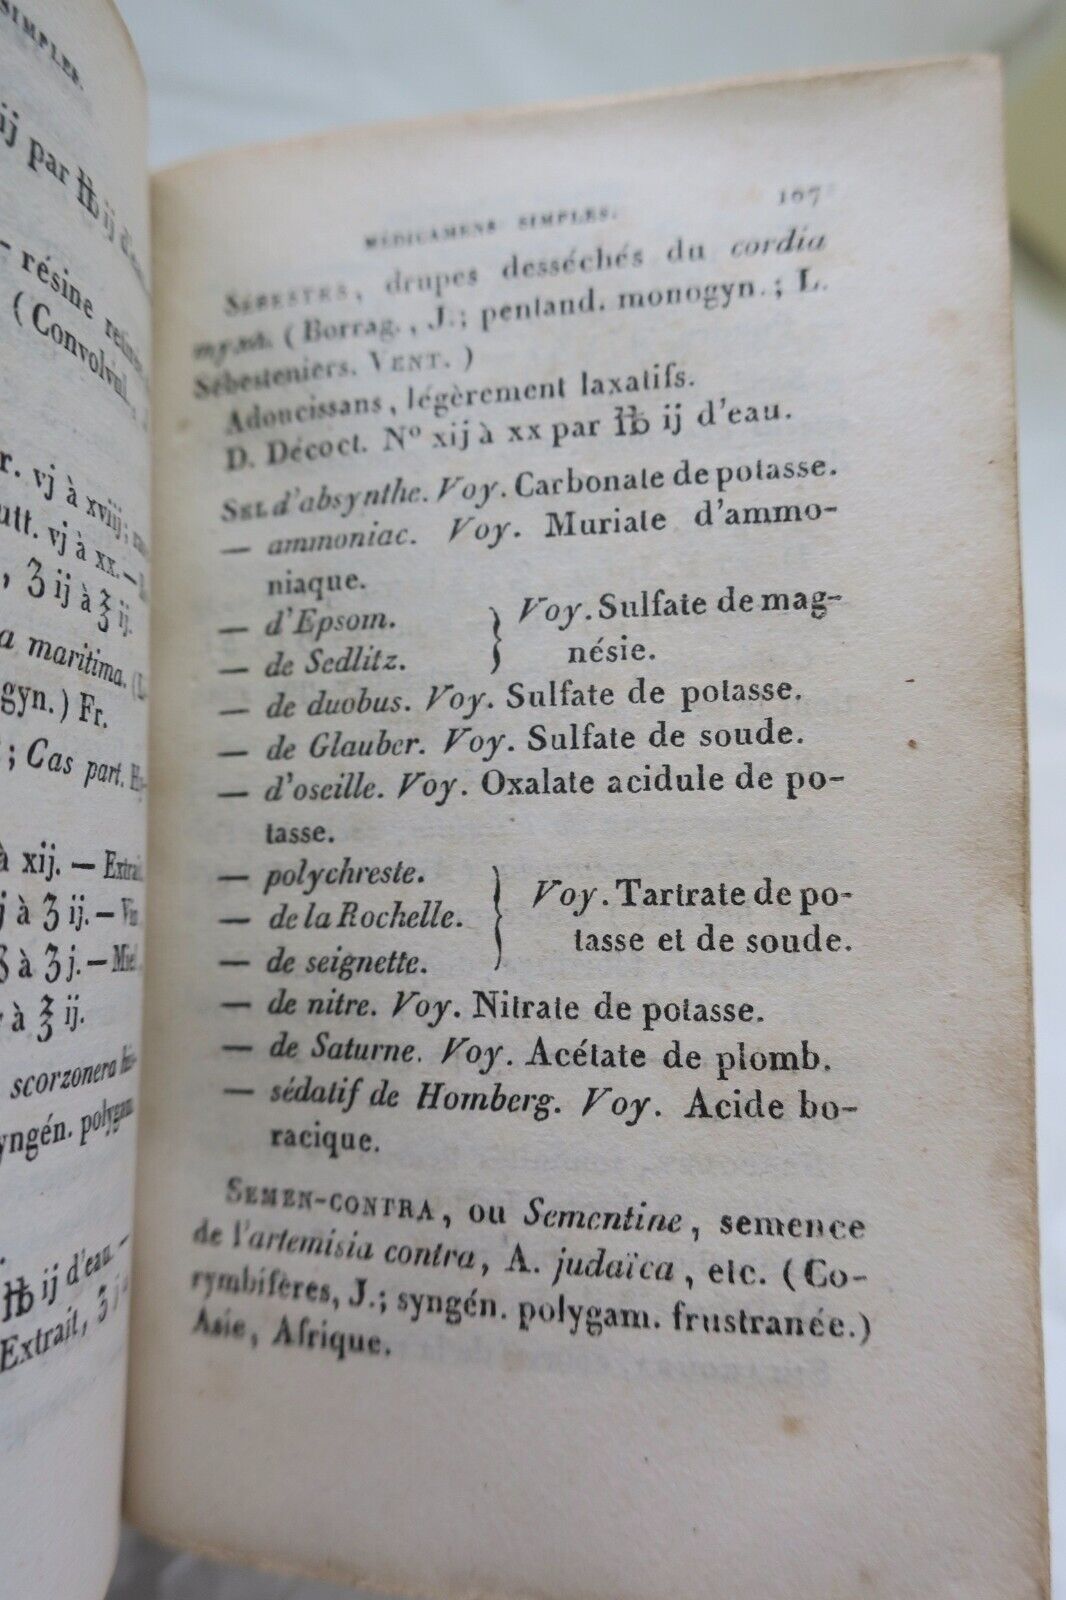 SIMPLES.
ij par ℔ ij d'eau
— résine
(Convolvul.
r. vj à xviij;
utt. vj à xx. —
, ʒ ij à ℥ ij.
a maritima. (L.
gyn.) Fr.
; Cas part. Hy-
à xij. — Extrait
j à ʒ ij. — Vin
à ʒ j. — Miel
à ℥ ij.
scorzonera
yngén. polygam.
℔ ij d'eau. —
Extrait, ʒ j
MÉDICAMENS SIMPLES. 107
SÉBESTES, drupes desséchés du cordia
myxa. (Borrag., J.; pentand. monogyn.; L.
Sébesteniers. VENT.)
Adoucissans, légèrement laxatifs.
D. Décoct. N° xij à xx par ℔ ij d'eau.
SEL d'absynthe. Voy. Carbonate de potasse.
— ammoniac. Voy. Muriate d'ammo-
niaque.
— d'Epsom. } Voy. Sulfate de mag-
— de Sedlitz. } nésie.
— de duobus. Voy. Sulfate de potasse.
— de Glauber. Voy. Sulfate de soude.
— d'oseille. Voy. Oxalate acidule de po-
tasse.
— polychreste.
— de la Rochelle. } Voy. Tartrate de po-
— de seignette. } tasse et de soude.
— de nitre. Voy. Nitrate de potasse.
— de Saturne. Voy. Acétate de plomb.
— sédatif de Homberg. Voy. Acide bo-
racique.
SEMEN-CONTRA, ou Sementine, semence
de l'artemisia contra, A. judaïca, etc. (Co-
rymbifères, J.; syngén. polygam. frustranée.)
Asie, Afrique.